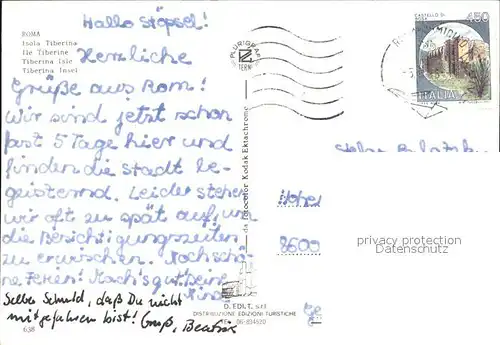 Hallo Stöpsel!
ROMA
Isola Tiberina
Ile Tiberine
Tiberina Isle
Tiberina Insel
Herzliche
Grüße aus Rom!
Wir sind jetzt schon
fast 5 Tage hier und
finden die Stadt be-
geisternd. Leider stehen
wir oft zu spät auf, um
die Besichtigungszeiten
zu erwischen. Noch schö-
ne Ferien! Mach's gut! Deine
Nina
Selber Schuld, daß Du nicht
mitgefahren bist! Gruß,
638
PLURIGRAF
TERNI
da Fotocolor Kodak Ektachrome
D. EDI.T. s.r.l
DISTRIBUZIONE EDIZIONI TURISTICHE
CASTELLO DI
450
ITALIA
8600
privacy protection
Datenschutz